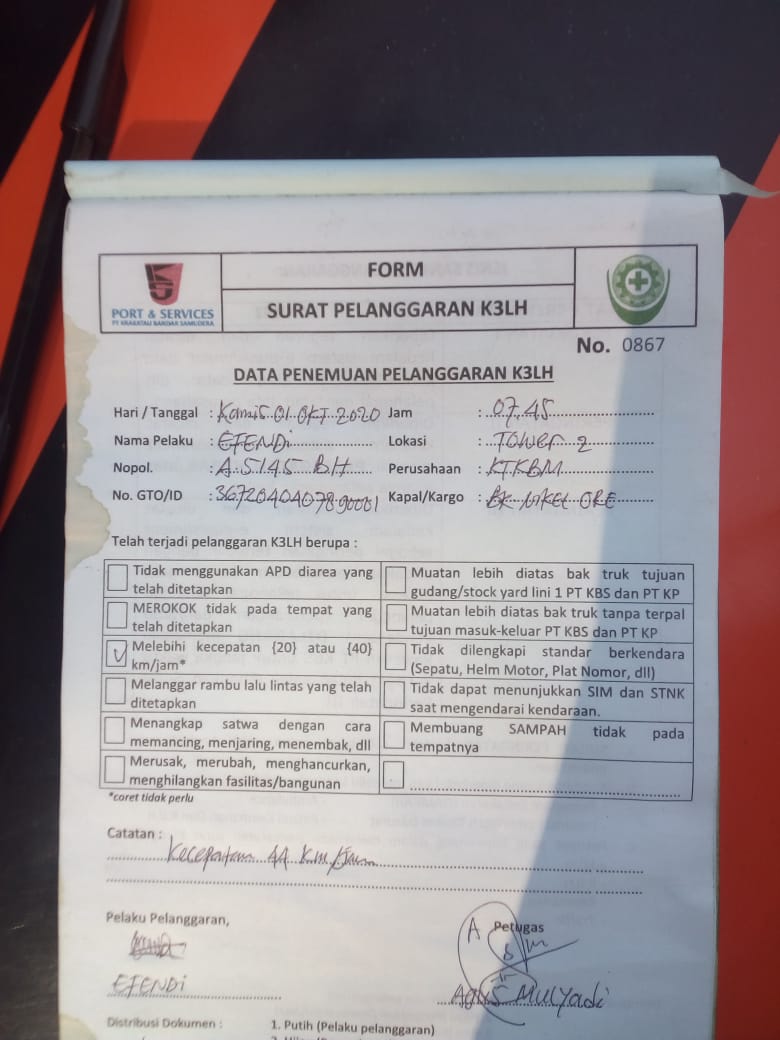 PORT & SERVICES
PT KRAKATAU BANDAR SAMUDERA
FORM
SURAT PELANGGARAN K3LH
No. 0867
DATA PENEMUAN PELANGGARAN K3LH
Hari / Tanggal : Kamis 01 OKT 2020 Jam : 07.45
Nama Pelaku : EFENDi Lokasi : Tower 2
Nopol. : A 5145 BH Perusahaan : KTKBM
No. GTO/ID : Kapal/Kargo : BK NIKEL ORE
Telah terjadi pelanggaran K3LH berupa :
Tidak menggunakan APD diarea yang telah ditetapkan
Muatan lebih diatas bak truk tujuan gudang/stock yard lini 1 PT KBS dan PT KP
MEROKOK tidak pada tempat yang telah ditetapkan
Muatan lebih diatas bak truk tanpa terpal tujuan masuk-keluar PT KBS dan PT KP
Melebihi kecepatan {20} atau {40} km/jam*
Tidak dilengkapi standar berkendara (Sepatu, Helm Motor, Plat Nomor, dll)
Melanggar rambu lalu lintas yang telah ditetapkan
Tidak dapat menunjukkan SIM dan STNK saat mengendarai kendaraan.
Menangkap satwa dengan cara memancing, menjaring, menembak, dll
Membuang SAMPAH tidak pada tempatnya
Merusak, merubah, menghancurkan, menghilangkan fasilitas/bangunan
*coret tidak perlu
Catatan :
Kecepatan 44 Km/Jam
Pelaku Pelanggaran,
Petugas
EFENDi
Agus Mulyadi
Distribusi Dokumen : 1. Putih (Pelaku pelanggaran)